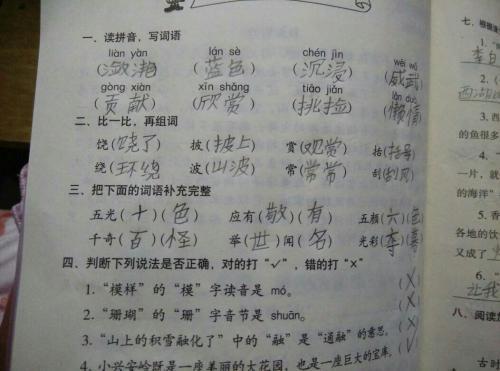 一、读拼音,写词语
liàn yàn lán sè chén jìn wēi wǔ
(潋滟) (蓝色) (沉浸) (威武)
gòng xiàn xīn shǎng tiāo jiǎn lǎn duò
(贡献) (欣赏) (挑捡) (懒惰)
二、比一比,再组词
饶(饶了) 披(披上) 赏(观赏) 括(括号)
绕(环绕) 波(山波) 常(常常) 刮(刮风)
三、把下面的词语补充完整
五光(十)(色) 应有(敬)(有) 五颜(六)(色)
千奇(百)(怪) 举(世)闻(名) 光彩(夺)(
四、判断下列说法是否正确,对的打“✓”,错的打“×”
1.“模样”的“模”字读音是 mó。 (X)
2.“珊瑚”的“珊”字音节是 shuān。 (X)
3.“山上的积雪融化了”中的“融”是“通融”的意思。 (X)
4.小兴安岭既是一座美丽的大花园,也是一座巨大的宝库。(√
七、根据课
1.
李白
2.
西湖
3.西
的鱼很多
4.
一片,就
的海洋”
5.香
各地的饮
又成了
6.
让我
八、阅读
古时